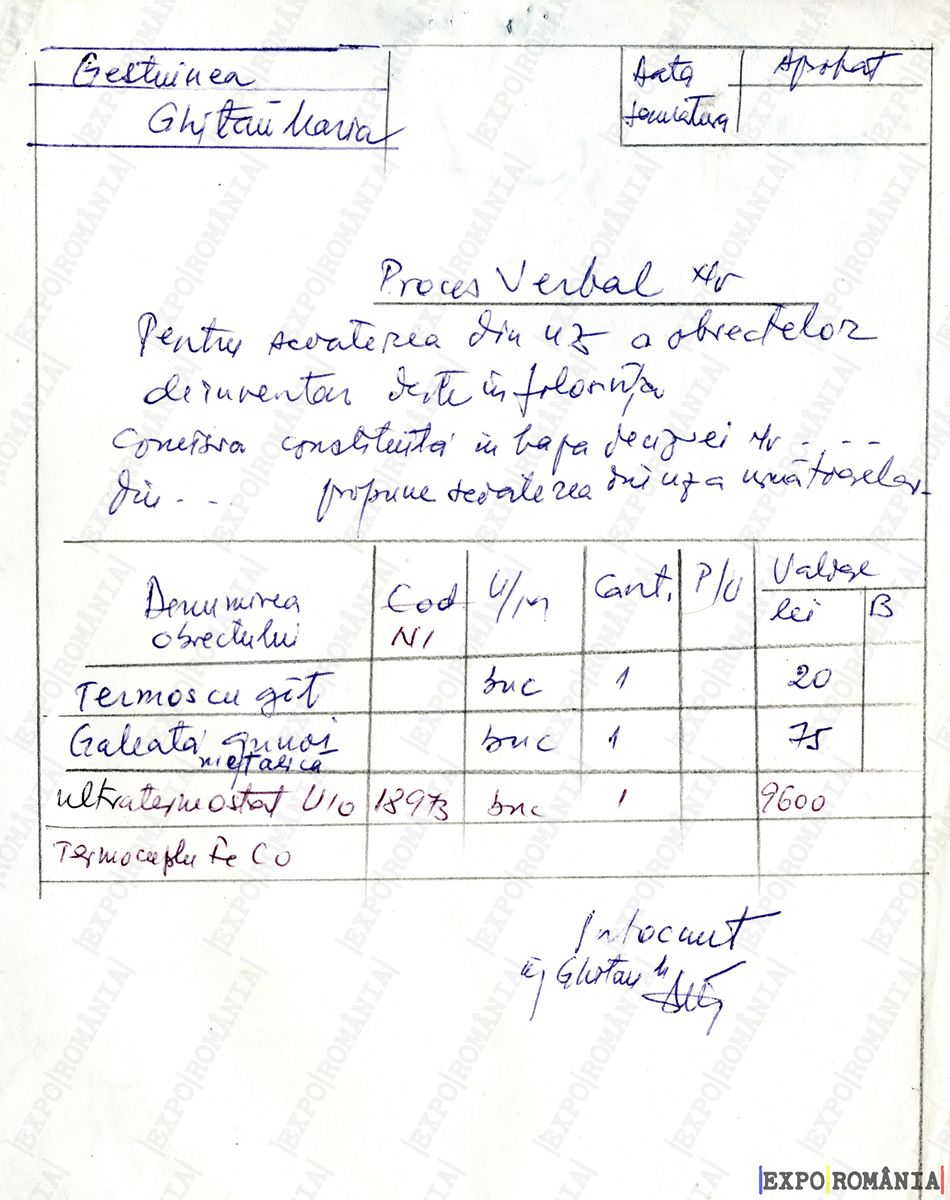 Gestiunea
Ghițău Maria
Data
Aprobat
semnătura
Proces Verbal Nr
Pentru scoaterea din uz a obiectelor
de inventar date în folosința
Comisia constituită în baza deciziei nr - - -
din - - propune scoaterea din uz a următoarelor
Denumirea
obiectului
Cod
NI
U/m
Cant.
P/U
Valoare
lei
B
Termos cu gît
buc
1
20
Galeată gunoi
metalica
buc
1
75
ultratermostat U10
18973
buc
1
9600
Termocuplu Fe Co
Intocmit
Ghitau M
EXPO ROMÂNIA